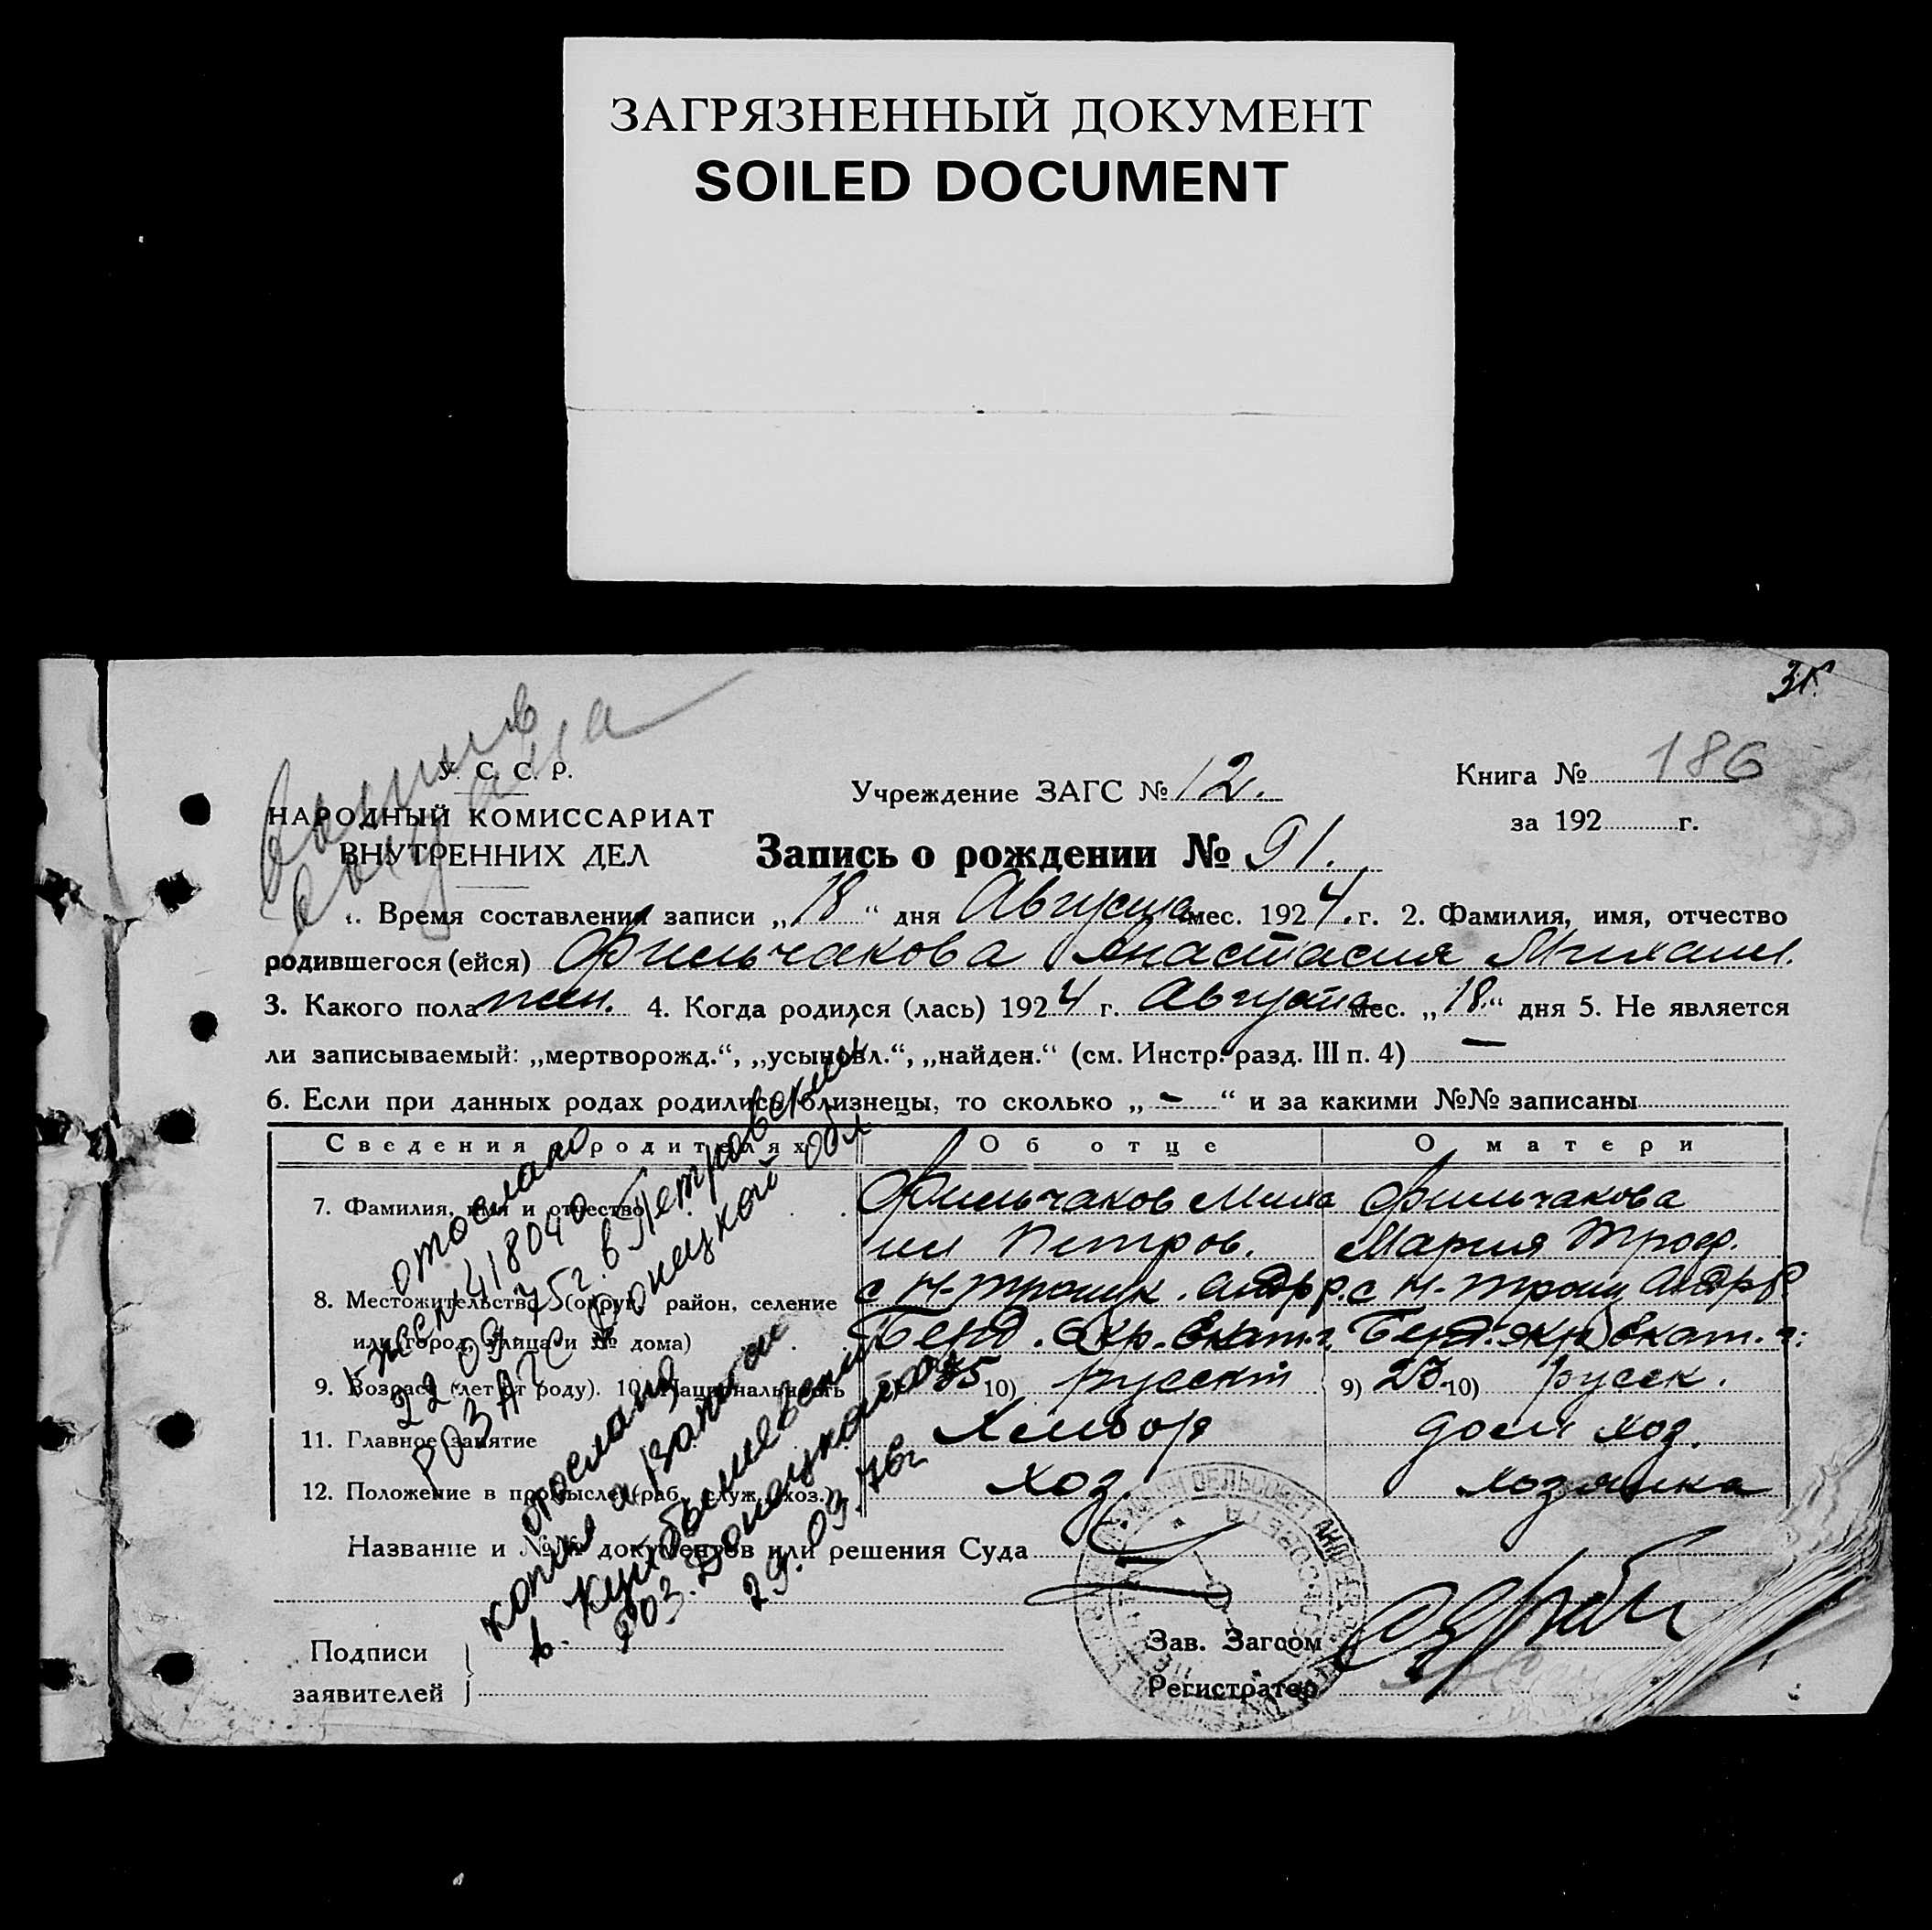 ЗАГРЯЗНЕННЫЙ ДОКУМЕНТ
SOILED DOCUMENT
У. С. С. Р.
НАРОДНЫЙ КОМИССАРИАТ
ВНУТРЕННИХ ДЕЛ
Учреждение ЗАГС № 12.
Книга № 186
за 192 г.
Запись о рождении № 91.
1. Время составления записи „18“ дня Августа мес. 1924. г. 2. Фамилия, имя, отчество
родившегося (ейся) Фильчакова Анастасия Михаил.
3. Какого пола жен. 4. Когда родился (лась) 1924 г. Августа мес. „18.“ дня 5. Не является
ли записываемый: „мертворожд.“, „усыновл.“, „найден.“ (см. Инстр. разд. III п. 4) —
6. Если при данных родах родились близнецы, то сколько „ - “ и за какими №№ записаны
Сведения о родителях
Об отце
О матери
7. Фамилия, имя и отчество
Фильчаков Миха
ил Петров.
Фильчакова
Мария Троф.
8. Местожительство (округ, район, селение
или город, улица и № дома)
с Н-Троицк. Андр р.
Берд. Окр. Екат. г.
с Н-Троиц Андр р.
Берд. окр Екат. г.
9. Возраст (лет от роду). 10. Национальность
10) русский
9) 23 10) русск.
11. Главное занятие
Хлебор
дом хоз.
12. Положение в промысле (раб., служ., хоз.)
хоз.
хозяйка
Название и №№ документов или решения Суда
Подписи
заявителей
Зав. Загсом
Регистратор
отослано
418040
22 09 75г. в Петровский
РОЗАГС Донецкой обл
отослана
копия а/записи
в. Куйбышевский
РОЗ. Донецкой
29. 03. 76г